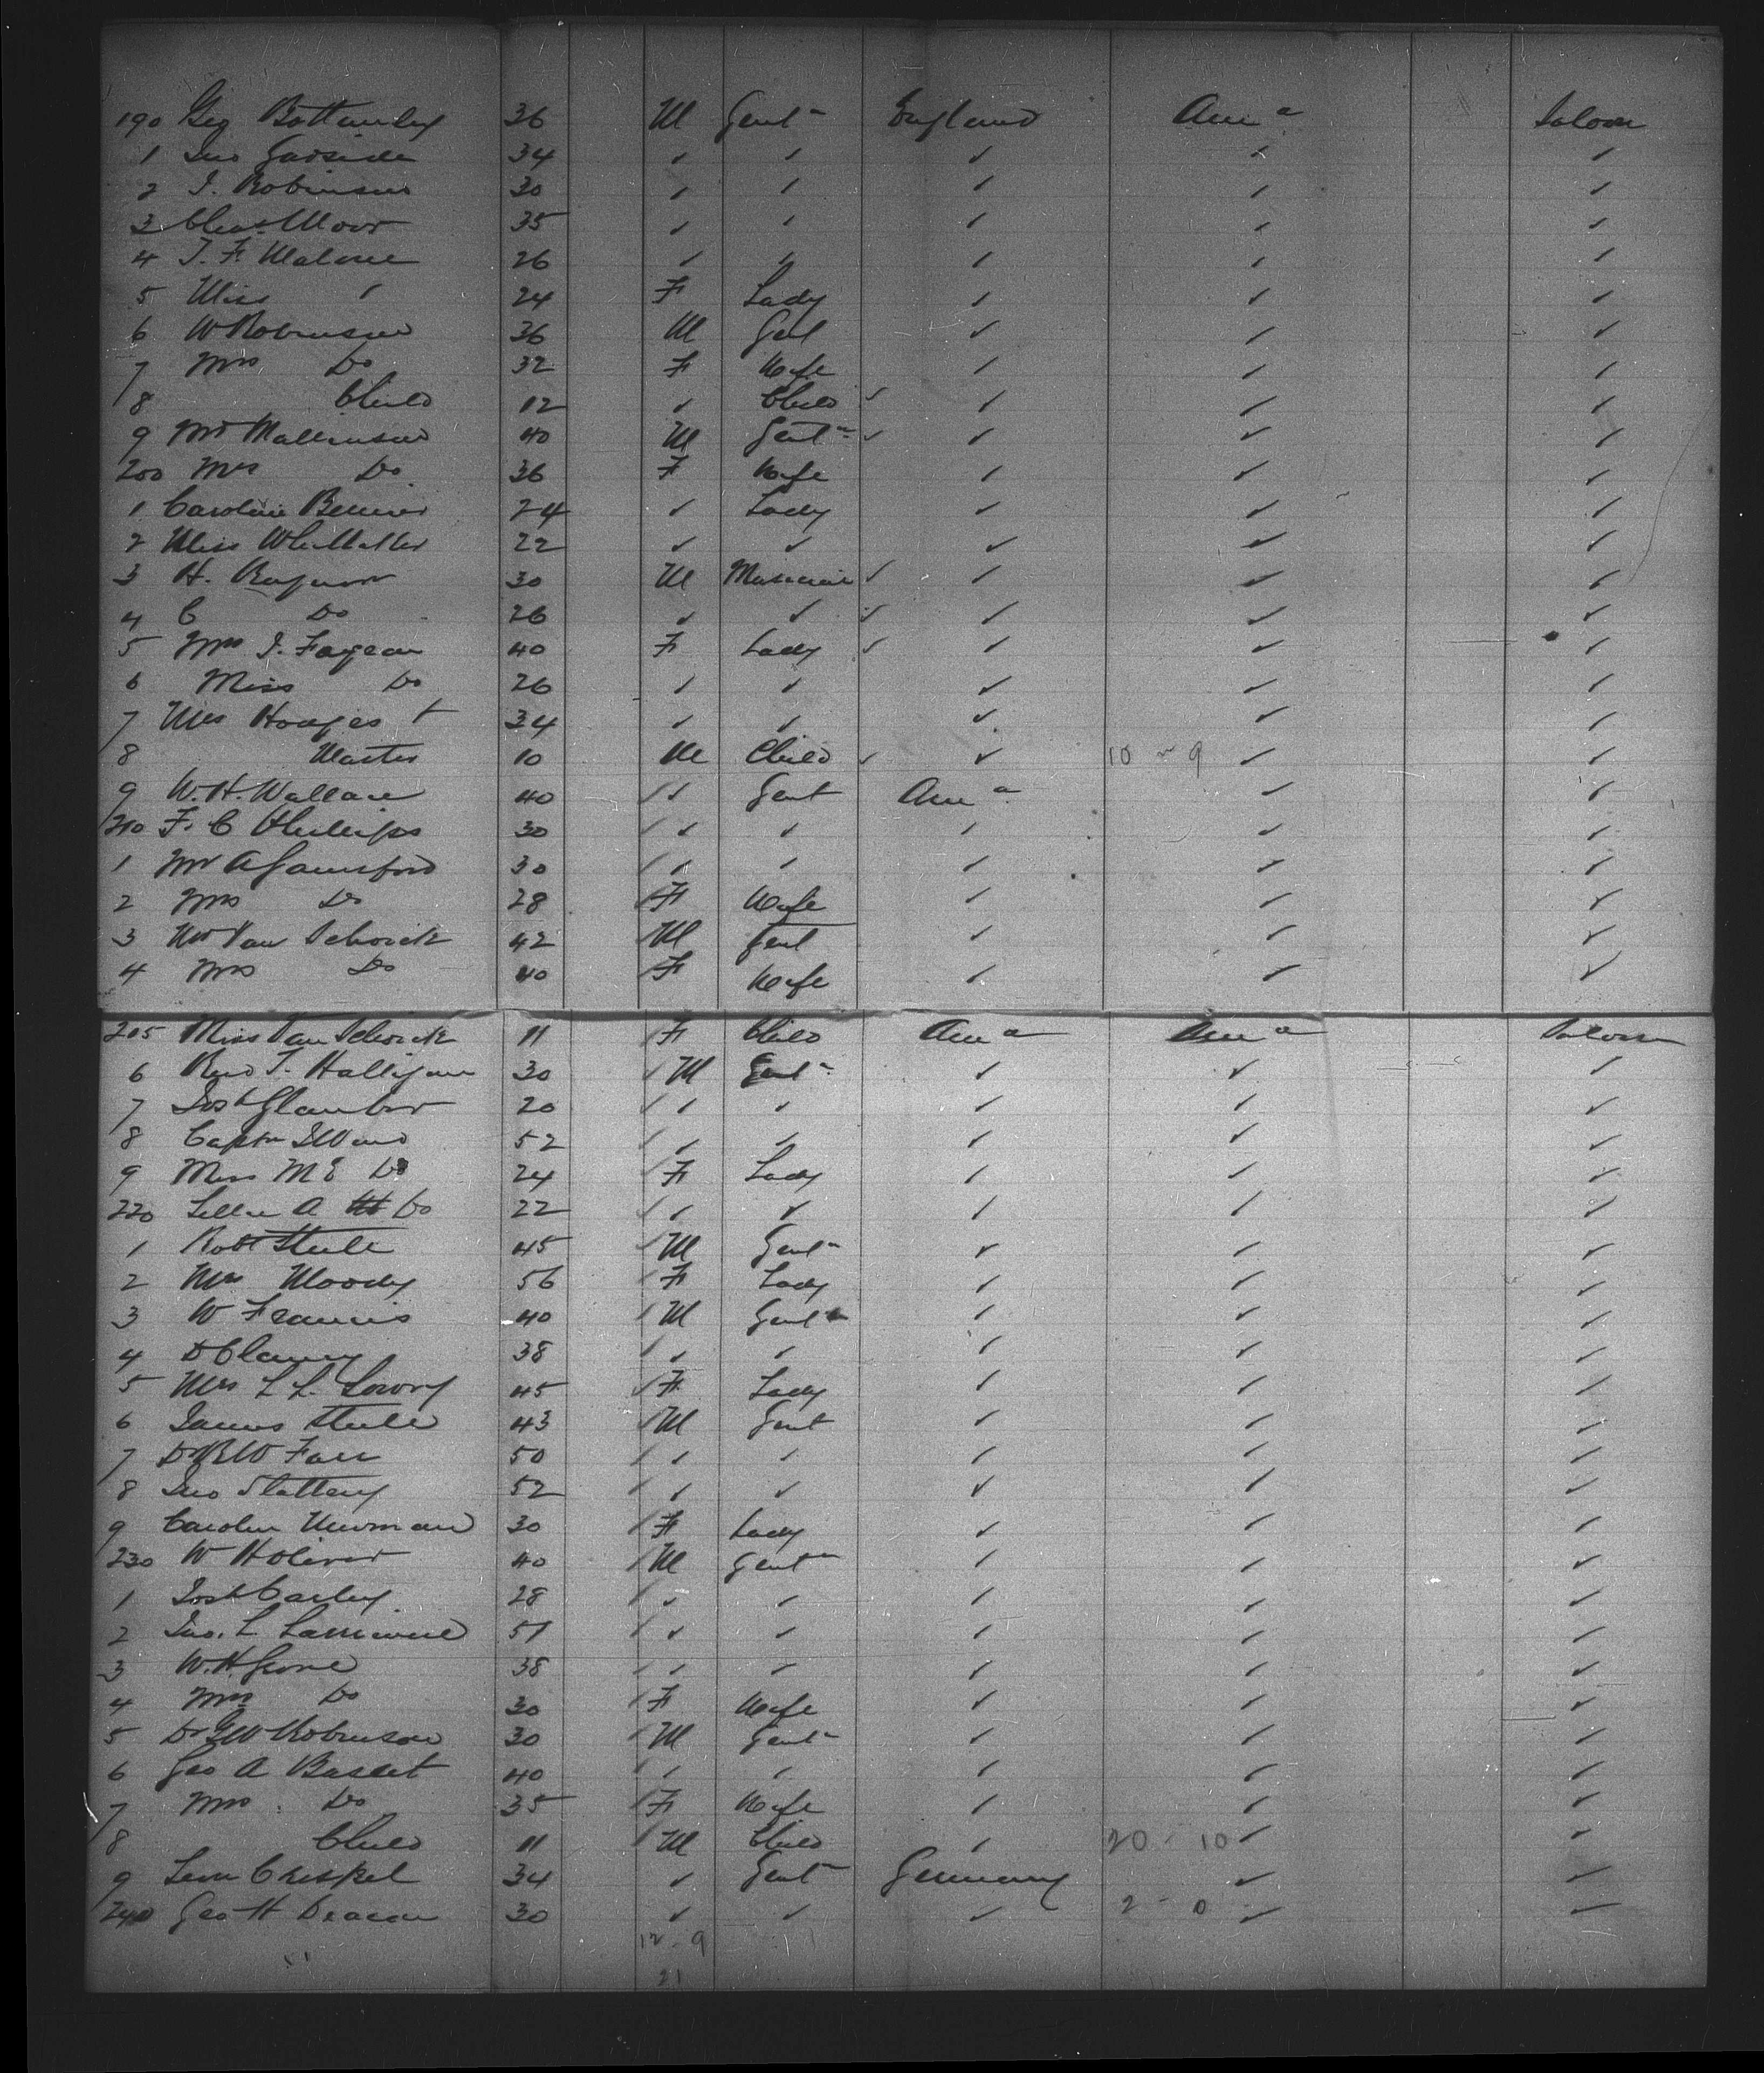 190 Geo Bottomley 36 M Gent England Am a Saloon
1 Jno Garside 34 ✓ ✓ ✓ ✓ ✓
2 J. Robinson 30 ✓ ✓ ✓ ✓ ✓
3 Chas Moor 35 ✓ ✓ ✓ ✓ ✓
4 J. F. Malone 26 ✓ ✓ ✓ ✓ ✓
5 Miss ✓ 24 F Lady ✓ ✓ ✓
6 W Robinson 36 M Gent ✓ ✓ ✓
7 Mrs Do 32 F Wife ✓ ✓ ✓
8 Child 12 ✓ Child ✓ ✓ ✓ ✓
9 Mr Mallinson 40 M Gent ✓ ✓ ✓ ✓
200 Mrs Do 36 F Wife ✓ ✓ ✓
1 Caroline 24 ✓ Lady ✓ ✓ ✓
2 Miss Whittaker 22 ✓ ✓ ✓ ✓ ✓
3 H. 30 M Musician ✓ ✓ ✓ ✓
4 C Do 26 ✓ ✓ ✓ ✓ ✓ ✓
5 Mrs J. Fagean 40 F Lady ✓ ✓ ✓ ✓
6 Miss Do 26 ✓ ✓ ✓ ✓ ✓
7 Mrs Hodges 34 ✓ ✓ ✓ ✓ ✓
8 Master 10 M Child ✓ ✓ 10 9 ✓ ✓
9 W. H. Wallace 40 ✓ ✓ Gent Am a ✓ ✓
210 F. C Phillips 30 ✓ ✓ ✓ ✓ ✓ ✓
1 Mr A Gainsford 30 ✓ ✓ ✓ ✓ ✓ ✓
2 Mrs Do 28 ✓ F Wife ✓ ✓ ✓
3 Mr Van Schoick 42 ✓ M Gent ✓ ✓ ✓
4 Mrs Do 40 ✓ F Wife ✓ ✓ ✓
205 Miss Van Schoick 11 ✓ F Child Am a Am a Saloon
6 Revd T. Halligan 30 ✓ M Gent ✓ ✓ ✓
7 Josh Glauber 20 ✓ ✓ ✓ ✓ ✓ ✓
8 Captn 52 ✓ ✓ ✓ ✓ ✓ ✓
9 Miss M E Do 24 ✓ F Lady ✓ ✓ ✓
220 A Do 22 ✓ ✓ ✓ ✓ ✓ ✓
1 Robt Steele 45 ✓ M Gent ✓ ✓ ✓
2 Mrs Moody 56 ✓ F Lady ✓ ✓ ✓
3 W Francis 40 ✓ M Gent ✓ ✓ ✓
4 D Clancy 38 ✓ ✓ ✓ ✓ ✓ ✓
5 Mrs L. L. Lowry 45 ✓ F Lady ✓ ✓ ✓
6 James Steele 43 ✓ M Gent ✓ ✓ ✓
7 Farr 50 ✓ ✓ ✓ ✓ ✓ ✓
8 Jno Slattery 52 ✓ ✓ ✓ ✓ ✓ ✓
9 Carolin Newman 30 ✓ F Lady ✓ ✓ ✓
230 W Holiver 40 ✓ M Gent ✓ ✓ ✓
1 Josh Carley 28 ✓ ✓ ✓ ✓ ✓ ✓
2 Jno. L. 51 ✓ ✓ ✓ ✓ ✓ ✓
3 W. H Grove 38 ✓ ✓ ✓ ✓ ✓ ✓
4 Mrs Do 30 ✓ F Wife ✓ ✓ ✓
5 Dr G W Robinson 30 ✓ M Gent ✓ ✓ ✓
6 Geo A Basset 40 ✓ ✓ ✓ ✓ ✓ ✓
7 Mrs Do 35 ✓ F Wife ✓ ✓ ✓
8 Child 11 ✓ M Child ✓ 20 - 10 ✓ ✓
9 34 ✓ Gent Germany ✓ ✓
240 Geo H Deacon 30 ✓ ✓ ✓ 2 - 0 ✓ ✓
12 - 9
21